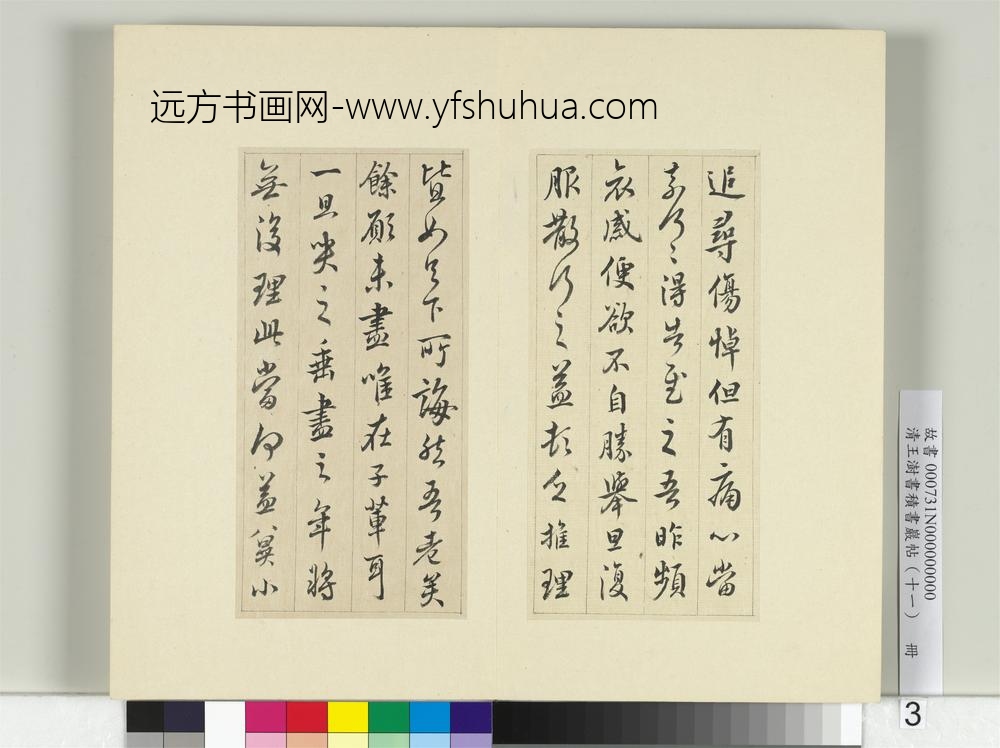 远方书画网-www.yfshuhua.com
追尋傷悼但有痛心當
奈何〻得告慰之吾昨頻
哀感便欲不自勝舉旦復
服散行之益頓乏推理
皆如足下所誨然吾老矣
餘願未盡唯在子輩耳
一旦哭之垂盡之年將
無復理此當何益冀小
故書 000731N000000000
清王澍書積書巖帖(十一) 冊
3